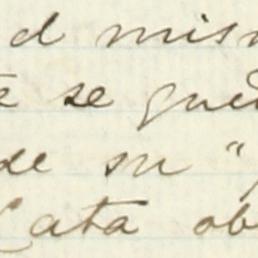 d mism
te se que
de su "
Cata ob